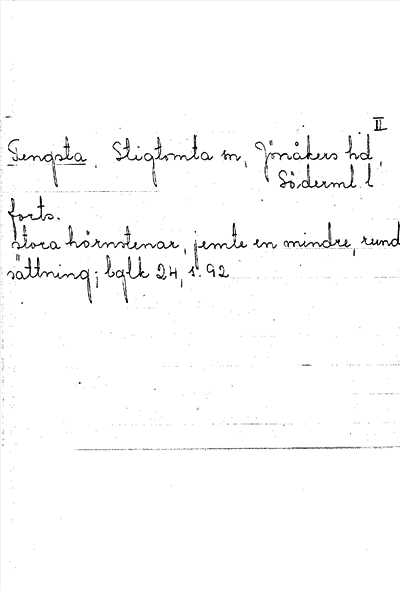 II
Tengsta, Stigtomta sn, Jönåkers hd,
Söderml. l
forts.
stora hörnstenar, jemte en mindre, rund
sättning; bglk 24, s. 92